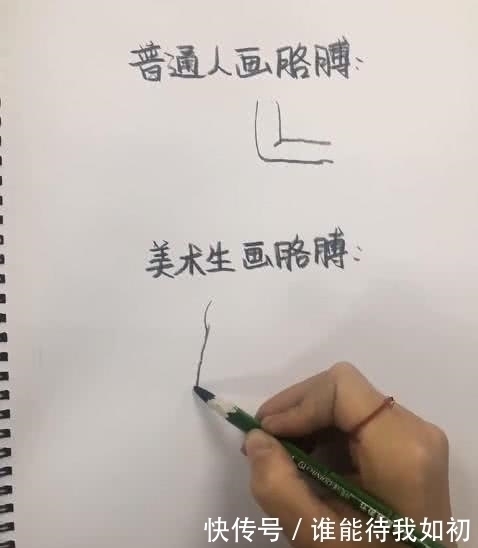 普通人画胳膊:
美术生画胳膊:
快传号 / 谁能待我如初